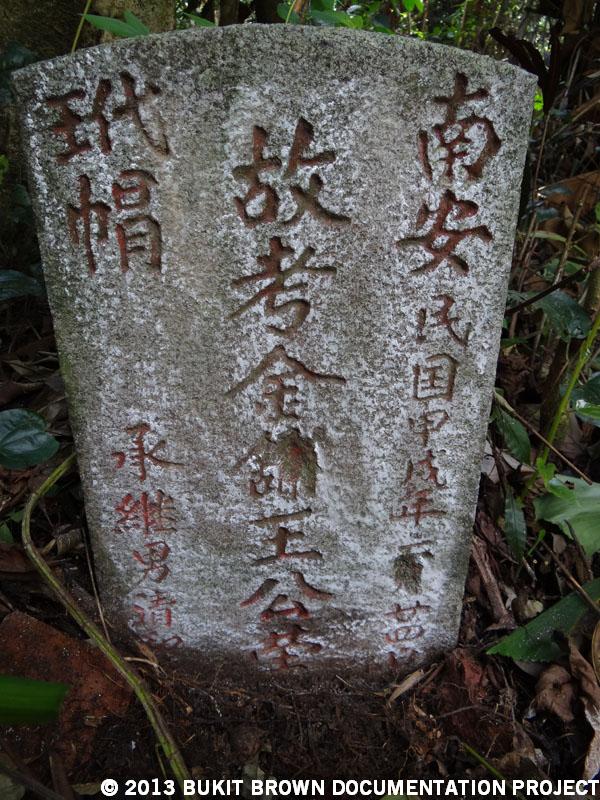 南安
民国甲戌年
故考金王公
玳帽
承継男清
© 2013 BUKIT BROWN DOCUMENTATION PROJECT